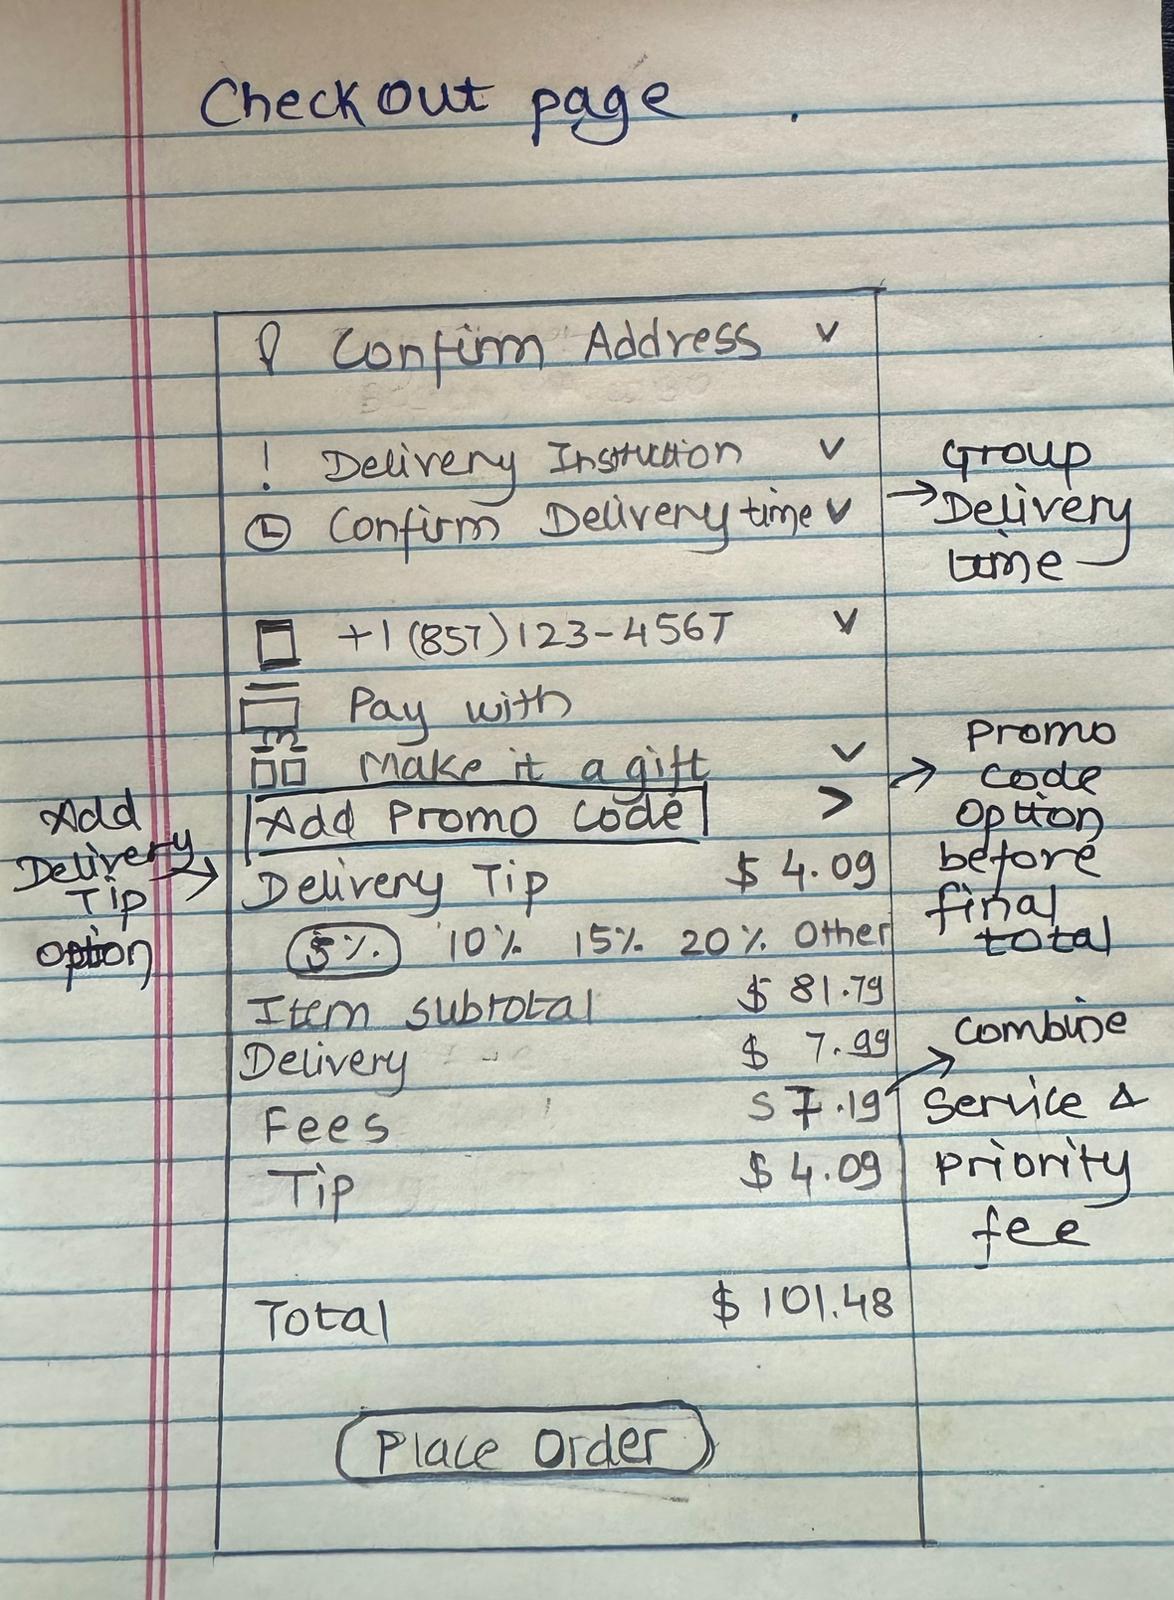 Checkout page
Confirm Address
! Delivery Instruction
Confirm Delivery time
Group
Delivery
time
+1 (857) 123-4567
Pay with
Make it a gift
Add Promo Code >
Promo
code
option
before
final
total
Add
Delivery
Tip
option
Delivery Tip $ 4.09
5% 10% 15% 20% Other
Item subtotal $ 81.79
Delivery $ 7.99
Fees $ 7.19
Combine
Service &
priority
fee
Tip $ 4.09
Total $ 101.48
Place Order